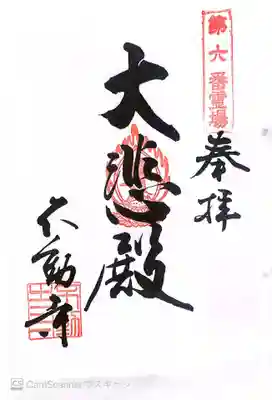 第六番霊場
奉拝
大悲殿
不動寺
CamScanner でスキャン